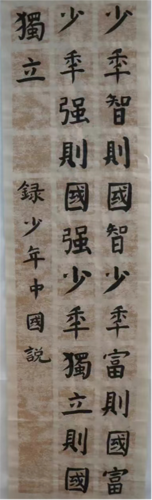 少秊智則國智少秊富則國富
少秊强則國强少秊獨立則國
獨立
録少年中國説